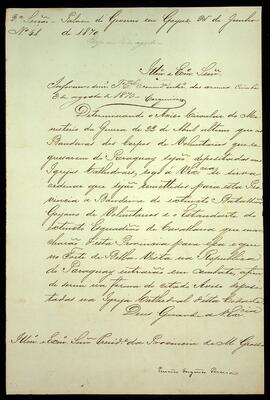 3ª Secção - Palacio do Governo em Goyaz 24 de Junho
Nº 41 de 1870
Illm e Exm Senr
Informe o Snr
de agosto de 1870
Determinando o Aviso Circular do Mi-
nisterio da Guerra de 22 de Abril ultimo que as
Bandeiras dos Corpos de Voluntarios que re-
gressarem do Paraguay sejão depositadas nas
Igrejas Cathedraes, rogo á V Exa se sirva
ordenar que sejão remettidas para esta Pro-
vincia a Bandeira do extincto Batalhão
Goyano de Voluntarios e o Estandarte do
extincto Esquadrão de Cavallaria que mar-
charão desta Provincia para essa e que
no Forte de Bella Vista na Republica
do Paraguay entrarão em combate, afim
de serem na forma do citado Aviso deposi-
tadas na Igreja Cathedral desta
Deos Guarde a V Exa
Illm e Exm Senr Presid da Provincia de M Grosso
Pereira